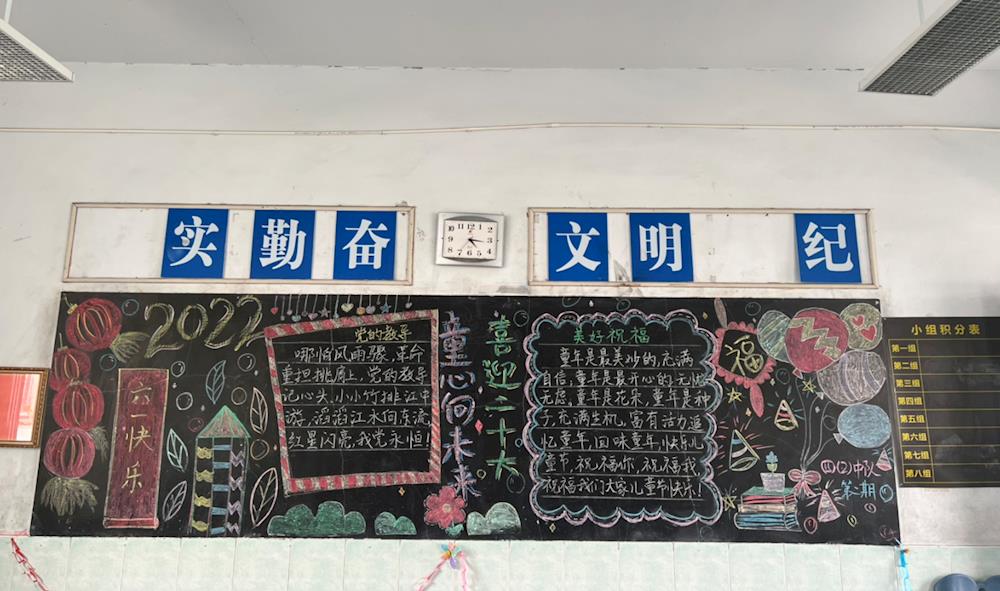 实 勤 奋
文 明 纪
12
2022
六一快乐
党的教导
哪怕风雨骤，革命
重担挑肩上，党的教导
记心头，小小竹排江中
游，滔滔江水向东流，
红星闪亮，我党永恒！
童心向未来
喜迎二十大
美好祝福
童年是最美妙的，充满
自信，童年是最开心的，无忧
无虑，童年是花朵，童年是种
子，充满生机，富有活力，追
忆童年，回味童年，快乐儿
童节，祝福你，祝福我，
祝福我们大家儿童节快乐！
福
四(2)中队
第一期
小组积分表
第一组
第二组
第三组
第四组
第五组
第六组
第七组
第八组